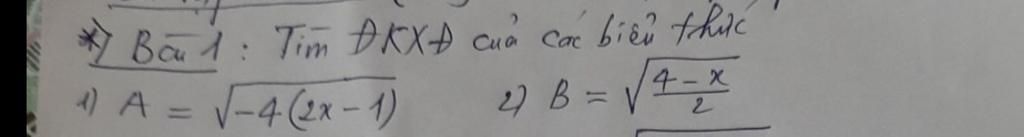 *) Bài 1 : Tìm ĐKXĐ của các biểu thức
1) A = √(-4(2x-1)) 2) B = √((4-x)/2)